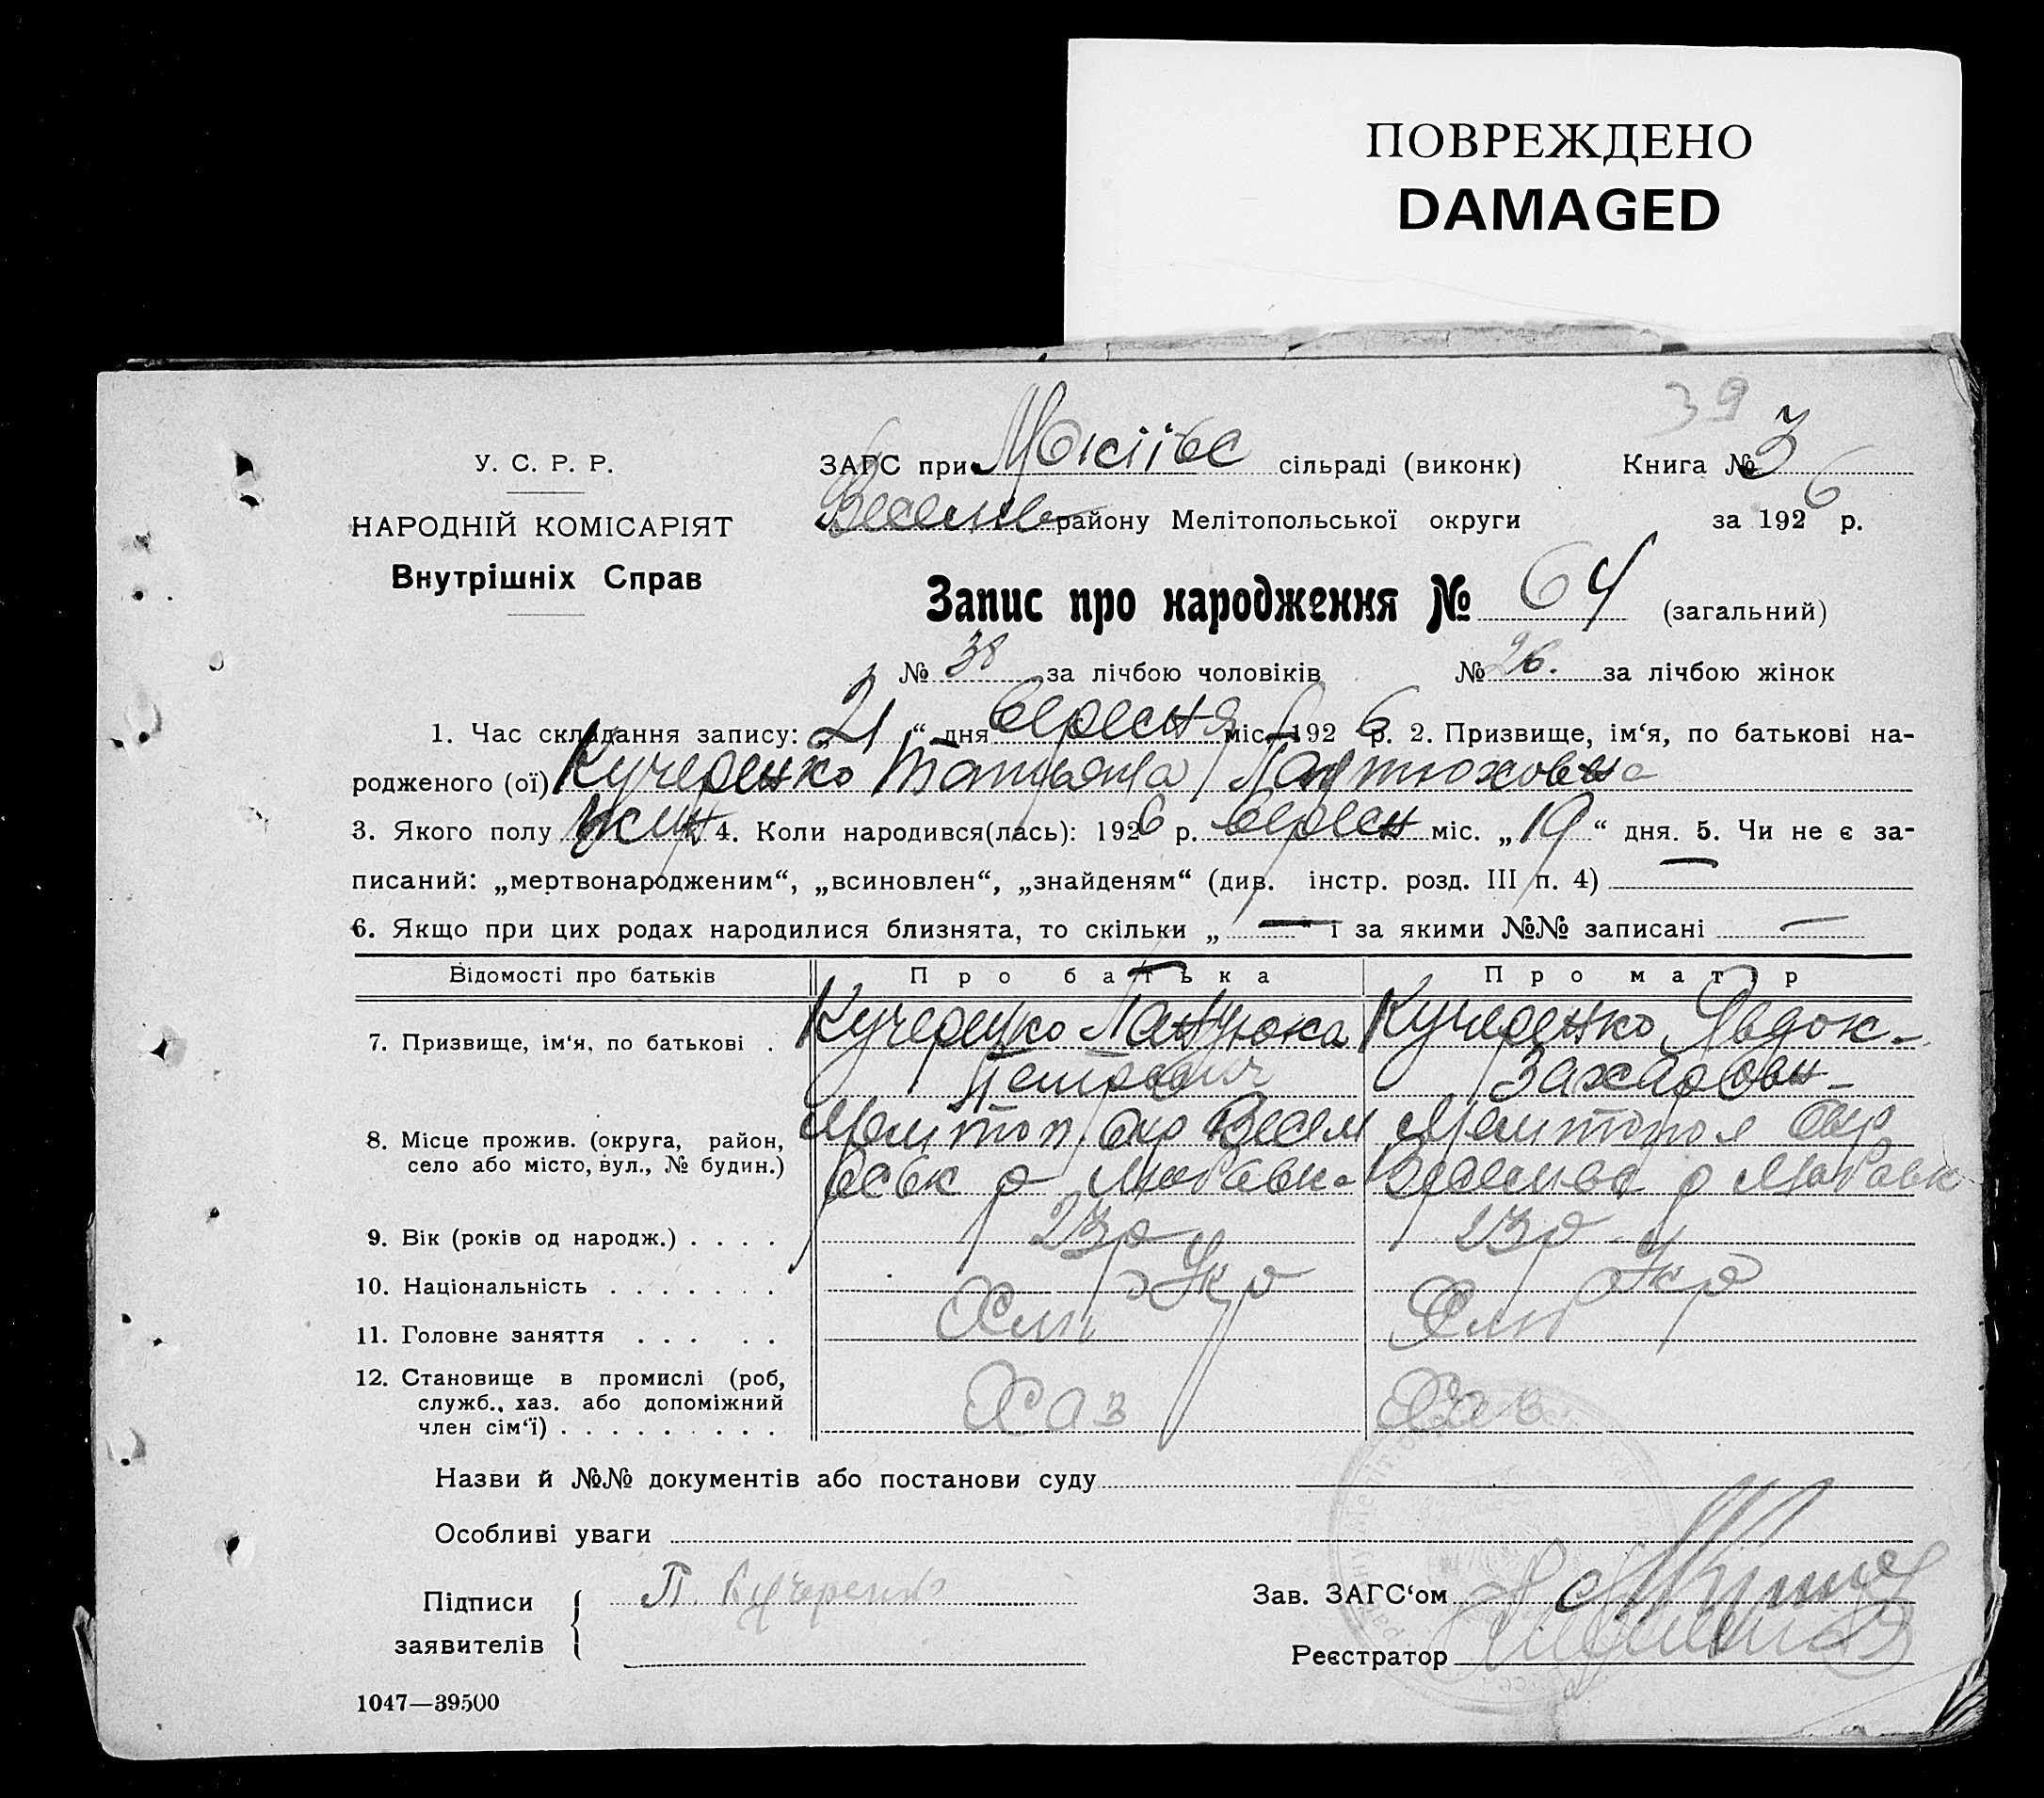 ПОВРЕЖДЕНО
DAMAGED
39
У. С. Р. Р.
НАРОДНІЙ КОМІСАРІЯТ
Внутрішніх Справ
ЗАГС при сільраді (виконк) Книга № 3
Веселів району Мелітопольської округи за 1926 р.
Запис про народження № 64 (загальний)
№ 38 за лічбою чоловіків № 26. за лічбою жінок
1. Час складання запису: „21“ дня вересня міс. 1926 р. 2. Призвище, ім‘я, по батькові на-
родженого (ої) Кучеренко Татьяна
3. Якого полу 4. Коли народився(лась): 1926 р. вересн міс. „19“ дня. 5. Чи не є за-
писаний: „мертвонародженим“, „всиновлен“, „знайденям“ (див. інстр. розд. III п. 4) —
6. Якщо при цих родах народилися близнята, то скільки „—“ і за якими №№ записані —
Відомості про батьків Про батька Про матір
7. Призвище, ім‘я, по батькові . Кучеренко Кучеренко Явдок-
Петрович Захаровн-
8. Місце прожив. (округа, район, Мелитоп окр Весел Мелитопол окр
село або місто, вул., № будин.)
9. Вік (років од народж.) . . . . 23 р 23 р
10. Національність . . . . . . . Укр Укр
11. Головне заняття . . . . . Хліп Хліп
12. Становище в промислі (роб,
служб., хаз. або допоміжний
член сім‘ї) . . . . . . . . . Хаз Хаз
Назви й №№ документів або постанови суду
Особливі уваги
Підписи
заявителів
П. Кучеренко
Зав. ЗАГС‘ом
Реєстратор
1047—39500